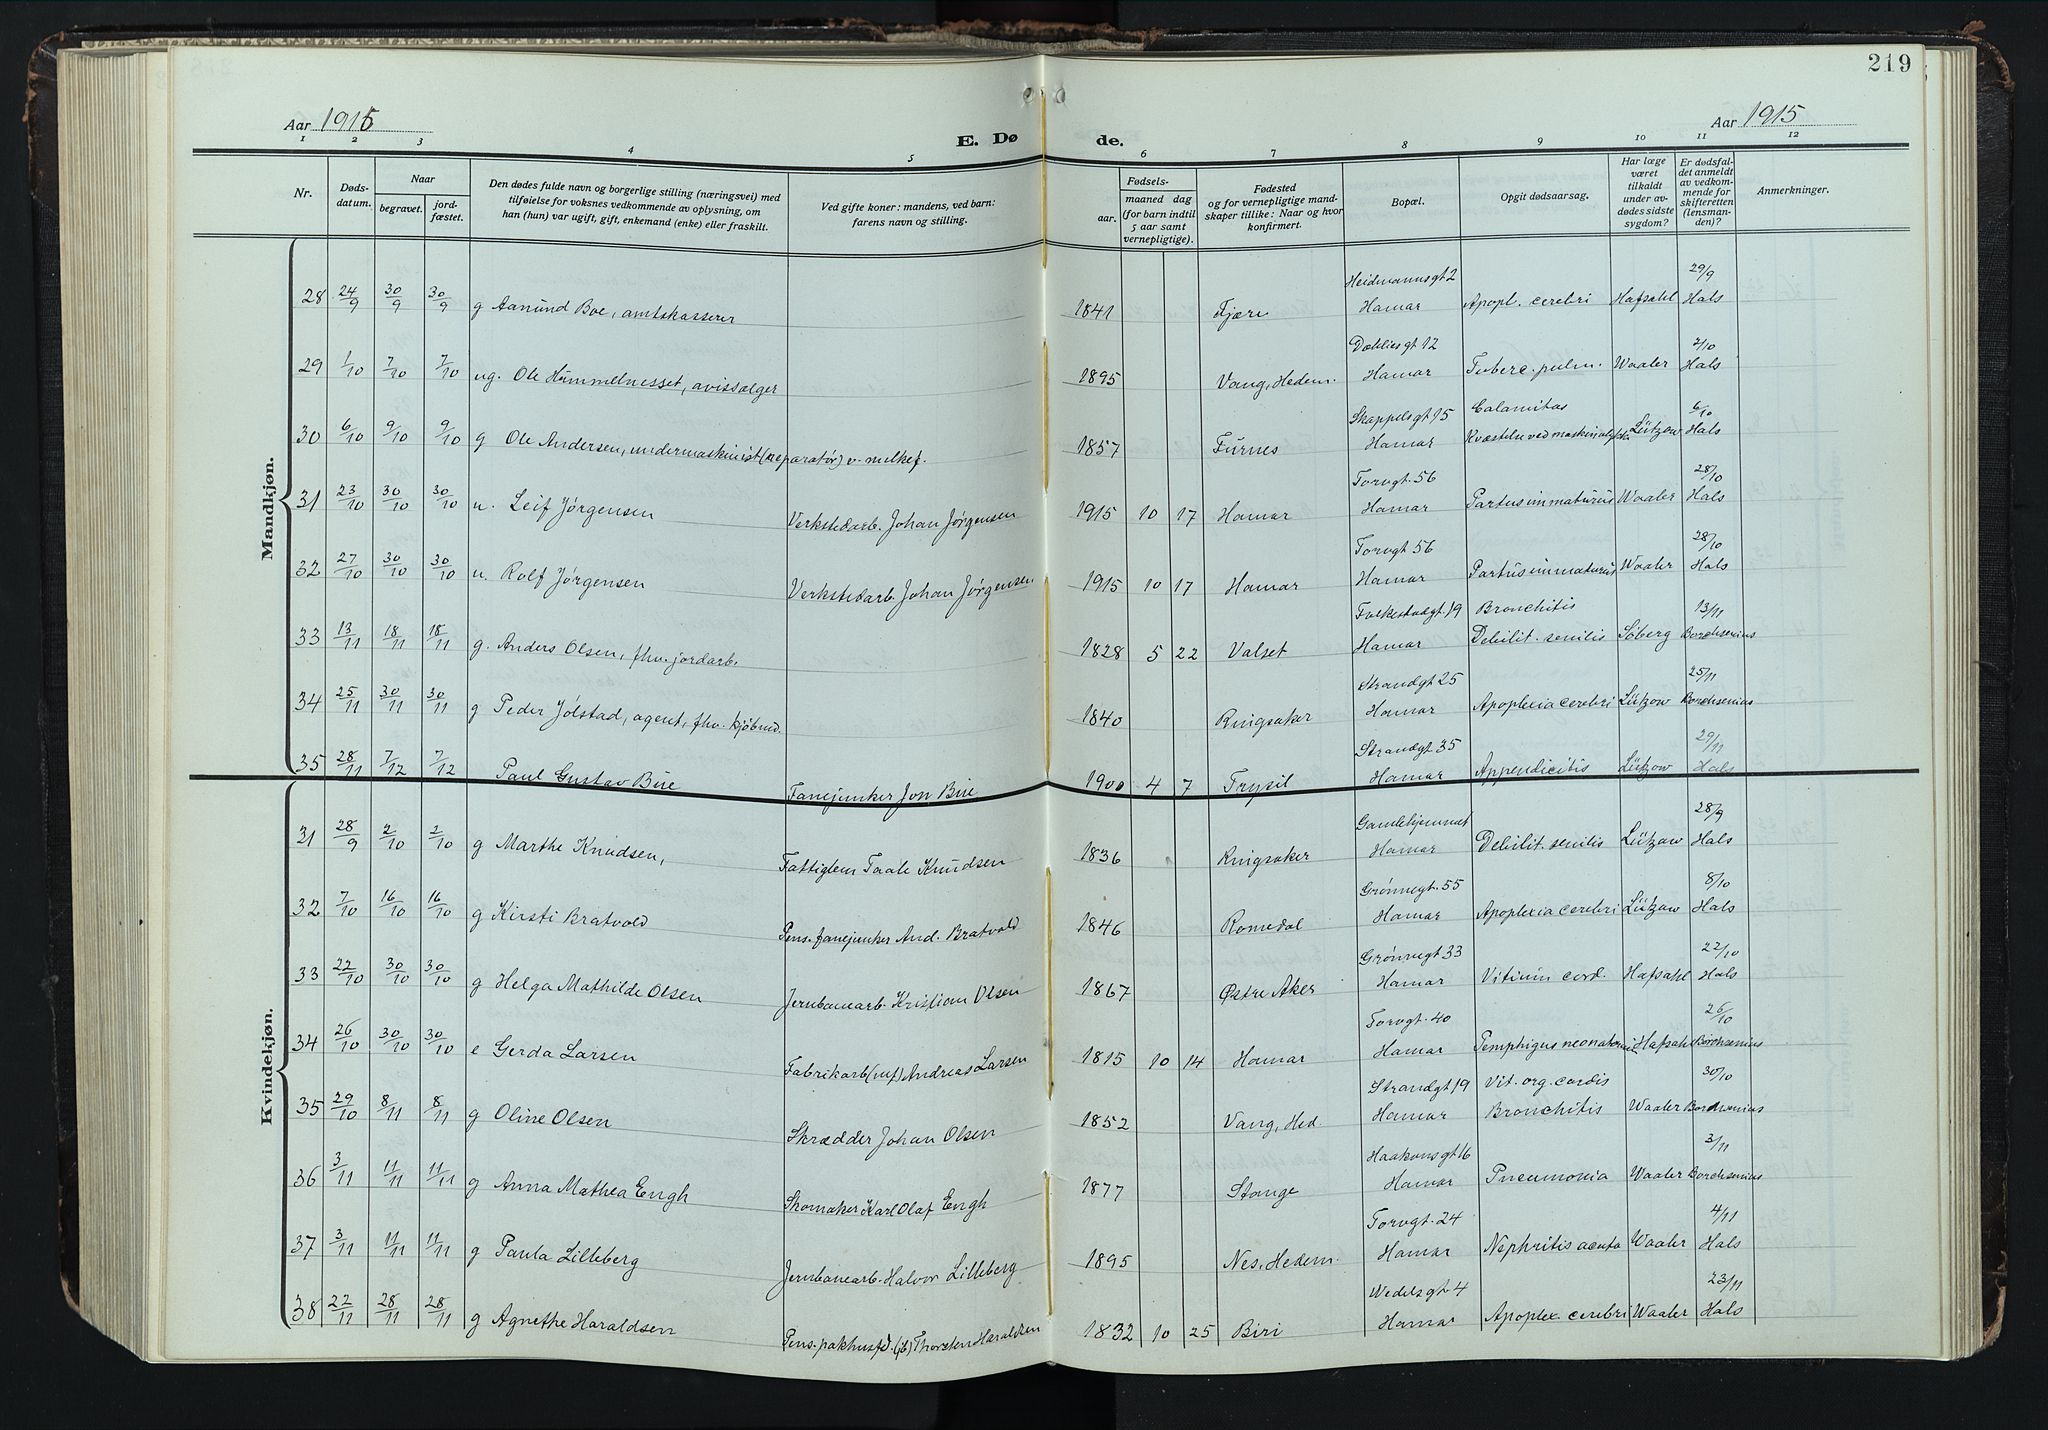 219
Aar 1915
E. Døde.
Aar 1915
1 2 3 4 5 6 7 8 9 10 11 12
Nr.
Døds-datum.
Naar
begravet.
jord-fæstet.
Den dødes fulde navn og borgerlige stilling (næringsvei) med
tilføielse for voksnes vedkommende av oplysning, om
han (hun) var ugift, gift, enkemand (enke) eller fraskilt.
Ved gifte koner: mandens, ved barn:
farens navn og stilling.
Fødsels-
aar.
maaned dag
(for barn indtil
5 aar samt
vernepligtige).
Fødested
og for vernepligtige mand-
skaper tillike: Naar og hvor
konfirmert.
Bopæl.
Opgit dødsaarsag.
Har læge
været
tilkaldt
under av-
dødes sidste
sygdom?
Er dødsfal-
det anmeldt
av vedkom-
mende for
skifteretten
(lensman-
den)?
Anmerkninger.
Mandkjøn.
28 24/9 30/9 30/9 g Aanund Boe, amtskasserer 1841 Fjære Heidmannsgt 2 Hamar Apopl. cerebri Hafsahl 29/9 Hals
29 1/10 7/10 7/10 ug. Ole Hummelnesset, avissælger 1895 Vang, Hedem. Dæhliesgt 12 Hamar Tuberc. pulm. Waaler 2/10 Hals
30 6/10 9/10 9/10 g Ole Andersen, undermaskinist (reparatør) v. melkef. 1857 Furnes Skappelsgt 15 Hamar Calamitas Kvæstelse ved maskinulykke Lützow 6/10 Hals
31 23/10 30/10 30/10 u. Leif Jørgensen Verkstedarb. Johan Jørgensen 1915 10 17 Hamar Torvgt. 56 Hamar Partus immaturus Waaler 28/10 Hals
32 27/10 30/10 30/10 u. Rolf Jørgensen Verkstedarb. Johan Jørgensen 1915 10 17 Hamar Torvgt 56 Hamar Partus immaturus Waaler 28/10 Hals
33 13/11 18/11 18/11 g. Anders Olsen, fhv. jordarb. 1828 5 22 Valset Folkestadgt. 19 Hamar Bronchitis Debilit. senilis Søberg 13/11 Borchsenius
34 25/11 30/11 30/11 g Peder Jølstad, agent, fhv. kjøbmd. 1840 Ringsaker Strandgt 25 Hamar Apoplexia cerebri Lützow 25/11 Borchsenius
35 28/11 7/12 7/12 Paul Gustav Bue Fanejunker Jon Bue 1900 4 7 Trysil Strandgt 35 Hamar Appendicitis Lützow 29/11 Hals
Kvindekjøn.
31 28/9 2/10 2/10 g Marthe Knudsen, Fattiglem Taale Knudsen 1836 Ringsaker Gamlehjemmet Hamar Debilit. senilis Lützow 28/9 Hals
32 7/10 16/10 16/10 g Kirsti Bratvold Pens. fanejunker And. Bratvold 1846 Romedal Grønnegt. 55 Hamar Apoplexia cerebri Lützow 8/10 Hals
33 22/10 30/10 30/10 g Helga Mathilde Olsen Jernbanearb. Kristian Olsen 1867 Østre Aker Grønnegt 33 Hamar Vitium cord. Hafsahl 22/10 Hals
34 26/10 30/10 30/10 e Gerda Larsen Fabrikarb Andreas Larsen 1815 10 14 Hamar Torvgt. 40 Hamar Pemphigus neonatorum Hafsahl 26/10 Borchsenius
35 29/10 8/11 8/11 g Oline Olsen Skrædder Johan Olsen 1852 Vang, Hed. Strandgt 19 Hamar Vit. org. cordis Bronchitis Waaler 30/10 Borchsenius
36 3/11 11/11 11/11 g Anna Mathea Engh Skomaker Karl Olaf Engh 1877 Stange Haakonsgt 16 Hamar Pneumonia Waaler 3/11 Borchsenius
37 3/11 11/11 11/11 g Paula Lilleberg Jernbanearb. Halvor Lilleberg 1895 Nes, Hedem. Torvgt. 24 Hamar Nephritis acuta Waaler 4/11 Hals
38 22/11 28/11 28/11 g Agnethe Haraldsen Pens. pakhusfd. Thorsten Haraldsen 1832 10 25 Biri Wedelsgt 4 Hamar Apoplex. cerebri Waaler 23/11 Hals